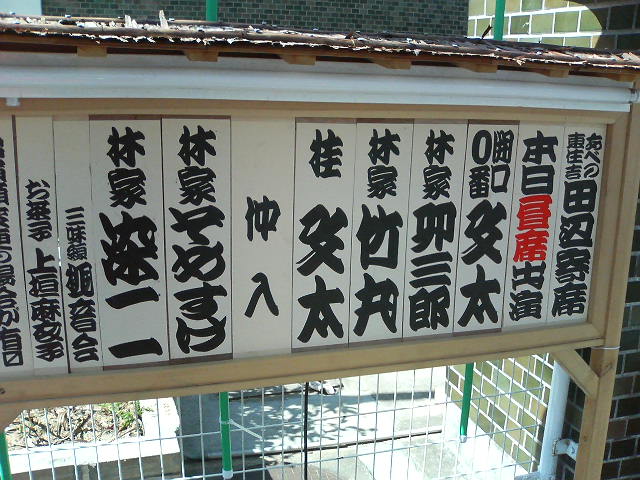 あべの
東住吉
田辺寄席
本日昼席出演
開口
0番
文太
林家
卯三郎
林家
竹丸
桂
文太
仲入
林家
そめすけ
林家
染二
三味線
音会
お茶子
上垣麻